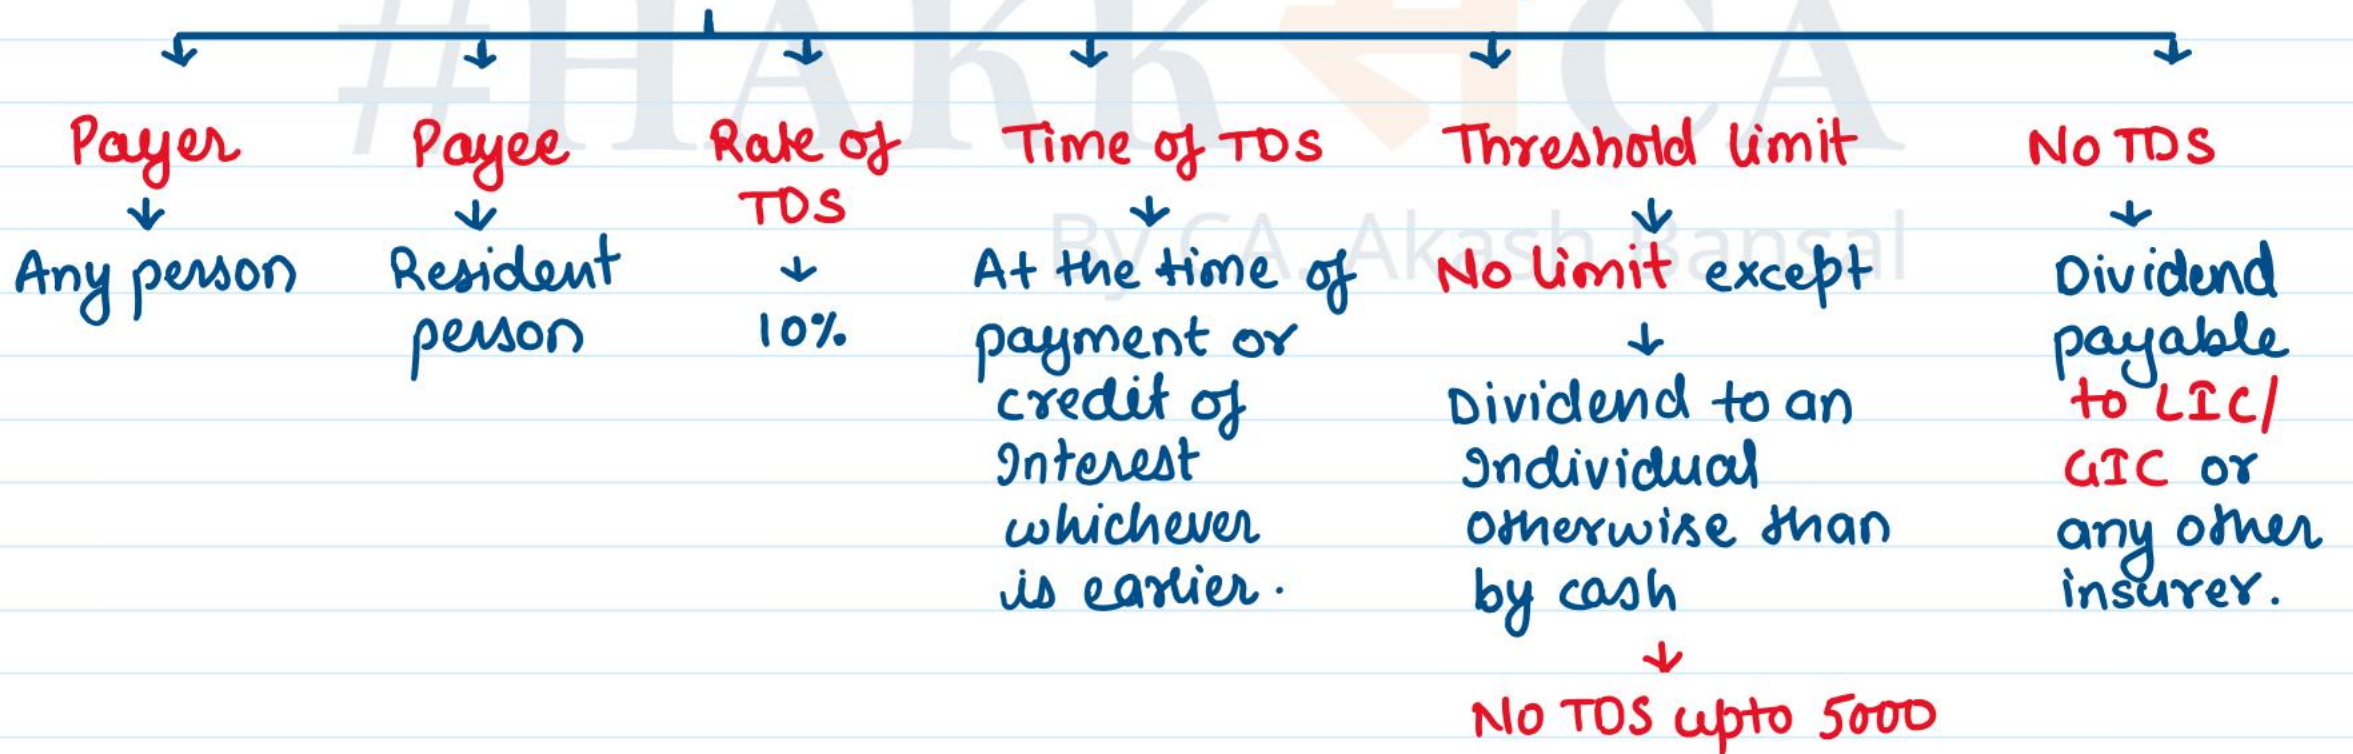 #HAKK से CA
By CA. Akash Bansal
Payer
↓
Any person
Payee
↓
Resident
person
Rate of
TDS
↓
10%
Time of TDS
↓
At the time of
payment or
credit of
Interest
whichever
is earlier.
Threshold limit
↓
No limit except
↓
Dividend to an
Individual
otherwise than
by cash
↓
No TDS upto 5000
No TDS
↓
Dividend
payable
to LIC/
GIC or
any other
insurer.